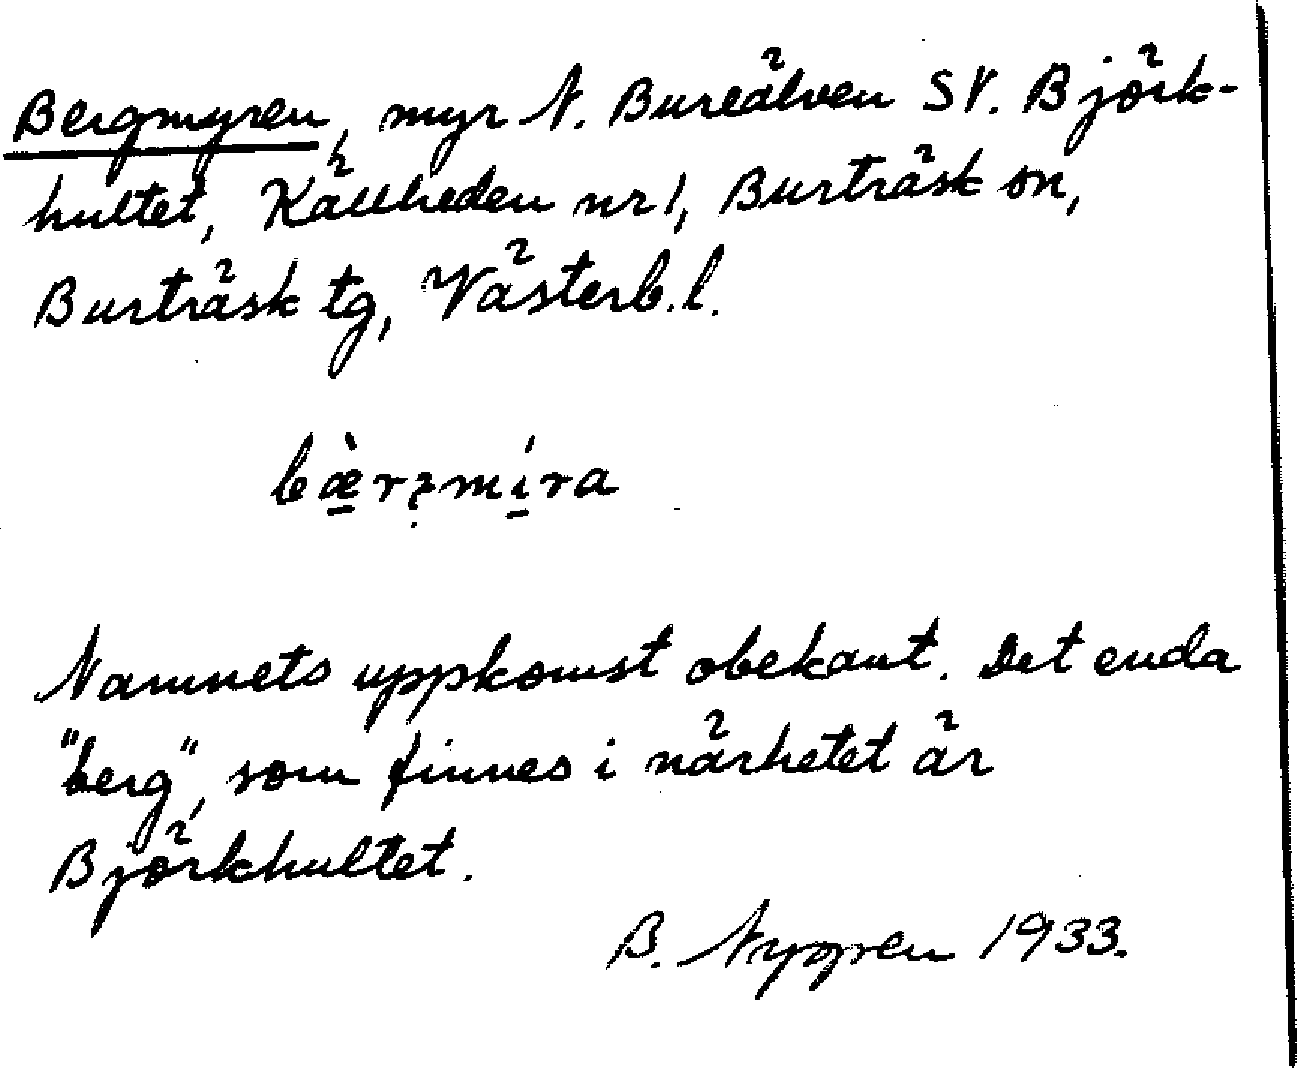 Bergmyren, myr N. Bureälven SV. Björk-
hultet, Källheden nr 1, Burträsk sn,
Burträsk tg, Västerb. l.
Namnets uppkomst obekant. Det enda
"berg", som finnes i närhetet är
Björkhultet.
B. Nygren 1933.